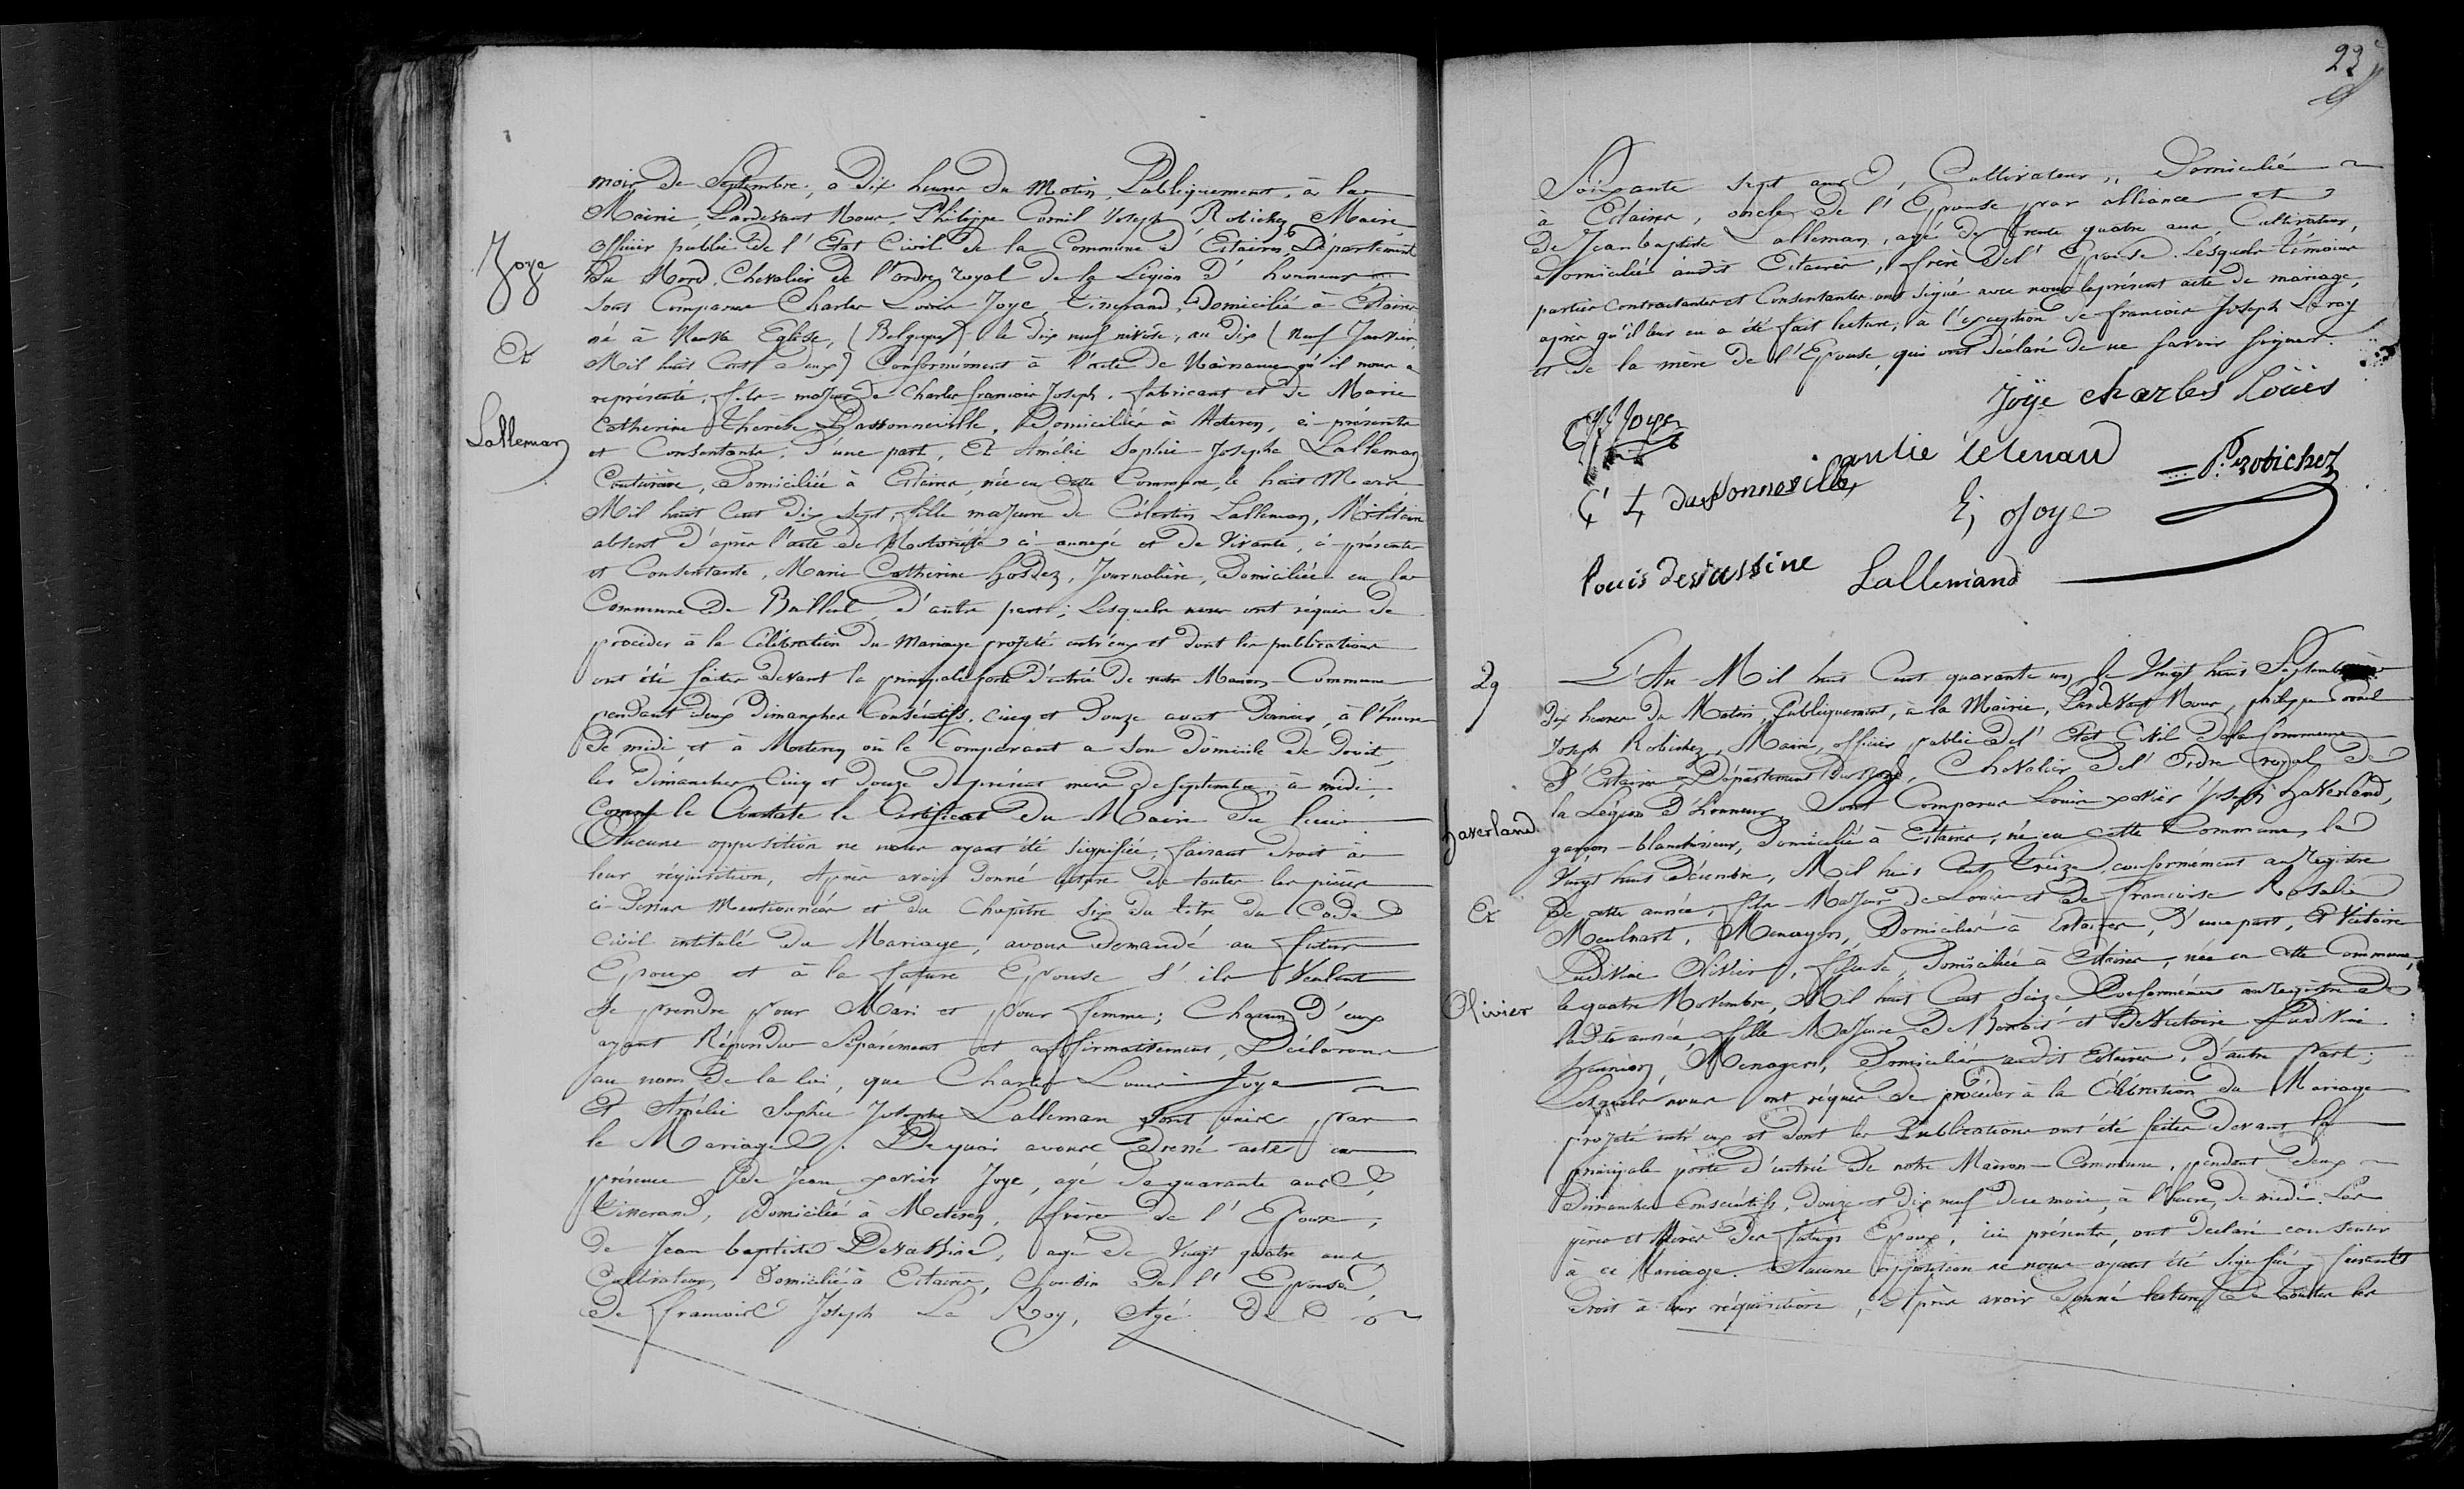 mois de Septembre, à dix heures du Matin, Publiquement, à la
Mairie, Pardevant Nous, Philippe Cornil Joseph Robichez, Maire
officier public de l'Etat Civil de la Commune d'Estaires, Département
du Nord, Chevalier de l'ordre royal de la Légion d'honneur
Joye
Sont Comparus Charles Louis Joye, tisserand, Domicilié à Estaires
né à Neuve Eglise, (Belgique) le dix neuf nivôse, an dix (neuf Janvier,
Et
Mil huit Cent deux) Conformément à l'acte de Naissance qu'il nous a
représenté, fils majeur de Charles francois Joseph, fabricant et de Marie
Catherine Thérèse Dassonneville, Domiciliés à Meteren, ci-présents
Lalleman
et Consentants, d'une part, Et Amélie Sophie Josephe Lalleman
Couturière, Domiciliée à Estaires, née en cette Commune, le huit Mars
Mil huit Cent dix sept, fille majeure de Célestin Lalleman, Militaire
absent d'après l'acte de Notoriété ci-annexé et de Vivante, ci-présente
et Consentante, Marie Catherine, Journalière, Domiciliée en la
Commune de Bailleul, d'autre part; Lesquels nous ont requis de
procéder à la Célébration du Mariage projeté entr'eux et dont les publications
ont été faites devant la principale porte d'entrée de notre Maison-Commune
pendant deux dimanches Consécutifs, cinq et douze dernier, à l'heure
de midi et à Meteren où le Comparant a son domicile de Droit,
les dimanches Cinq et douze du présent mois de septembre, à midi,
Comme le Constate le Certificat du Maire du lieu
Aucune opposition ne nous ayant été signifiée, faisant droit à
leur réquisition, Après avoir donné lecture de toutes les pièces
ci-dessus Mentionnées et du Chapitre Six du titre du Code
civil intitulé du Mariage, avons demandé au futur
Epoux et à la future Epouse s'ils Veulent
se prendre pour Mari et pour femme; Chacun d'eux
ayant Répondu Séparément et affirmativement, Déclarons
au nom de la loi, que Charles Louis Joye
Et Amélie Sophie Josephe Lalleman Sont unis par
le Mariage. De quoi avons dressé acte en
présence de Jean xavier Joye, agé de quarante ans,
tisserand, Domicilié à Meteren, frère de l'Epoux,
de Jean baptiste Devassine, agé de Vingt quatre ans,
Cultivateur, Domicilié à Estaires, Cousin de l'Epouse,
de francois Joseph Le Roy, Agé de
22
Soixante sept ans, Cultivateur, Domicilié
à Estaires, oncle de l'Epouse par alliance et
de Jean baptiste Lalleman, agé de trente quatre ans, Cultivateur,
domicilié audit Estaires, frère de l'Epouse. Lesquels témoins
parties Contractantes et Consentantes ont signé avec nous le présent acte de mariage,
après qu'il leur en a été fait lecture, à l'exception de francois Joseph Leroy
et de la mère de l'Epouse, qui ont déclaré de ne savoir signer.
Joÿe charles Loüis
Joye
P. Robichez
dassonneville
J Joye
Louis devassine
Lallemand
29
L'An Mil huit Cent quarante un, le Vingt huit Septembre
Dix heures du Matin, Publiquement, à la Mairie, Pardevant Nous, philippe Cornil
Joseph Robichez, Maire, officier public de l'Etat Civil de la Commune
d'Estaires, Département du Nord, Chevalier de l'Ordre royal de
la Légion d'honneur, Sont Comparus Louis xavier Joseph Haverland,
Haverland
garçon-blanchisseur, Domicilié à Estaires, né en cette Commune, le
Vingt huit Décembre, Mil huit Cent treize, conformément au Registre
Et
de cette année, fils Majeur de Louis et de francoise Rosalie
Menagers, Domiciliés à Estaires, d'une part, Et Victoire
Ludivine Olivier, fileuse, domiciliée à Estaires, née en cette Commune,
Olivier
le quatre Novembre, Mil huit Cent Seize Conformément au registre de
ladite année, fille Majeure de Benoit et de Victoire Ludivine
Menagers, Domiciliés audit Estaires, d'autre part;
Lesquels nous ont requis de procéder à la Célébration du Mariage
projeté entr'eux et dont les Publications ont été faites devant la
principale porte d'entrée de notre Maison-Commune, pendant deux
Dimanches Consécutifs, douze et dix neuf de ce mois, à l'heure de midi. Les
pères et Mères des futurs Epoux, ici présents, ont déclaré consentir
à ce Mariage. Aucune opposition ne nous ayant été signifiée, faisant
droit à leur réquisition, Après avoir donné lecture de toutes les